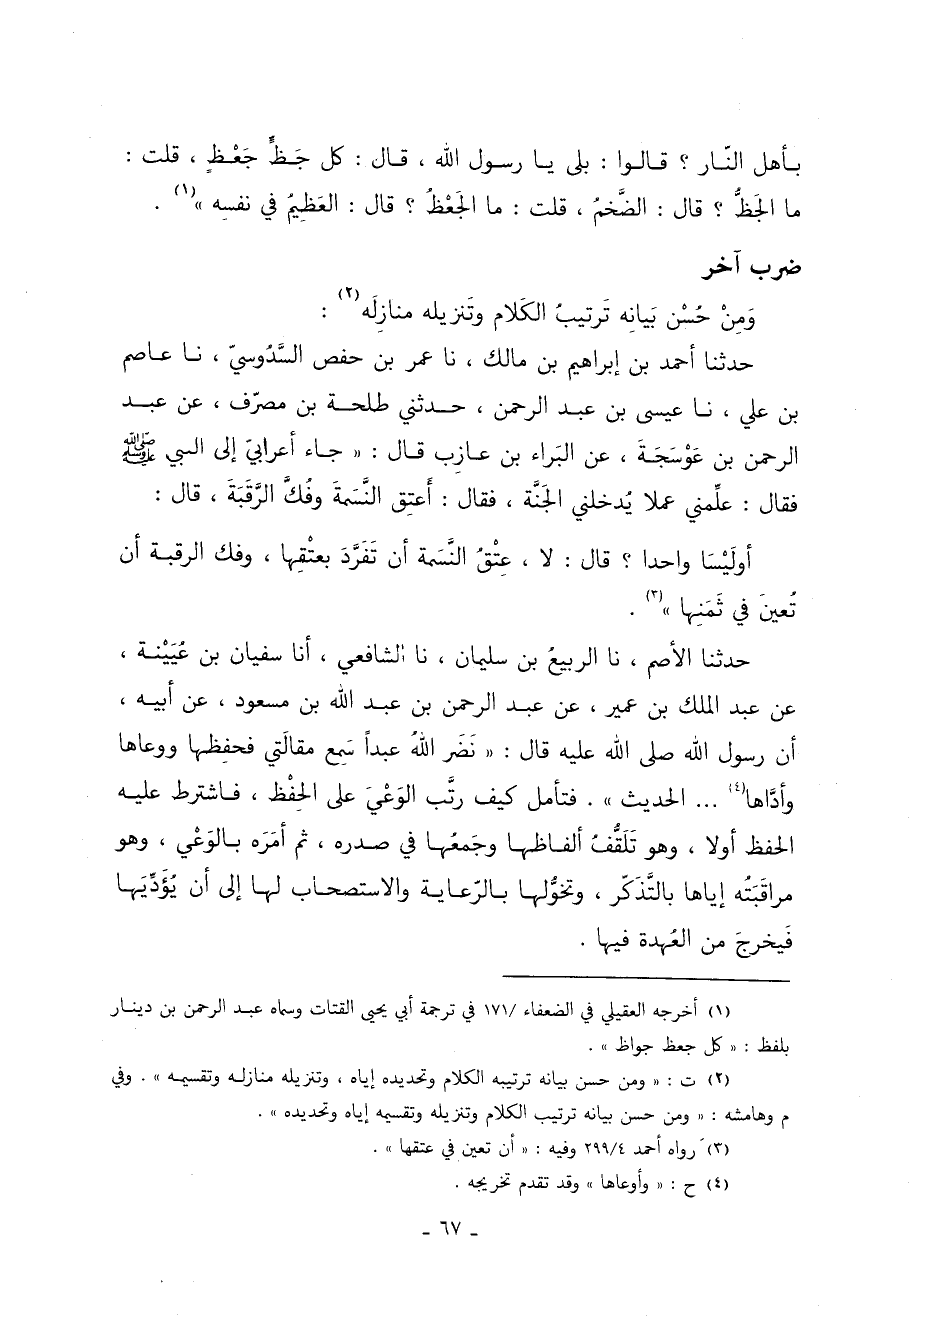 بأهل النّار ؟ قالوا : بلى يا رسول الله ، قال : كل جَظٍّ جَعْظٍ ، قلت :
ما الجَظُّ ؟ قال : الضَّخمُ ، قلت : ما الجَعْظُ ؟ قال : العَظِيمُ في نفسِه »(١) .
ضرب آخر
وَمِنْ حُسْن بَيَانِه تَرتيبُ الكَلام وتَنزيله منازِلَه(٢) :
حدثنا أحمد بن إبراهيم بن مالك ، نا عمر بن حفص السَّدُوسيّ ، نا عاصم
بن علي ، نا عيسى بن عبد الرحمن ، حدثني طلحة بن مصرّف ، عن عبد
الرحمن بن عَوْسَجَةَ ، عن البَراء بن عازب قال : « جاء أعرابيّ إلى النبي ﷺ
فقال : علِّمني عملا يُدخلني الجَنَّة ، فقال : أَعتِق النَّسَمةَ وفُكَّ الرَّقَبَةَ ، قال :
أولَيْسَا واحدا ؟ قال : لا ، عِتْقُ النَّسَمة أن تَفَرَّدَ بعتْقِها ، وفك الرقبة أن
تُعينَ في ثَمَنِها »(٣) .
حدثنا الأصم ، نا الربيعُ بن سليمان ، نا الشافعي ، أنا سفيان بن عُيَيْنة ،
عن عبد الملك بن عمير ، عن عبد الرحمن بن عبد الله بن مسعود ، عن أبيه ،
أن رسول الله صلى الله عليه قال : « نَضَر اللهُ عبداً سَمِع مقالَتي فحفِظها ووعاها
وأدَّاها(٤) ... الحديث » . فتأمل كيف رتَّب الوَعْيَ على الحِفْظ ، فاشترط عليه
الحفظ أولا ، وهو تَلَقُّفُ ألفاظها وجَمعُها في صدره ، ثم أمَرَه بالوَعْي ، وهو
مراقَبَتُه إياها بالتَّذكّر ، وتخوُّلها بالرّعاية والاستصحاب لها إلى أن يُؤَدِّيَها
فَيخرجَ من العُهدة فيها .
(١) أخرجه العقيلي في الضعفاء /١٧١ في ترجمة أبي يحيى القتات وسماه عبد الرحمن بن دينار
بلفظ : « كل جعظ جواظ » .
(٢) ت : « ومن حسن بيانه ترتيبه الكلام وتحديده إياه ، وتنزيله منازله وتقسيمه » . وفي
م وهامشه : « ومن حسن بيانه ترتيب الكلام وتنزيله وتقسيمه إياه وتحديده » .
(٣) رواه أحمد ٢٩٩/٤ وفيه : « أن تعين في عتقها » .
(٤) ح : « وأوعاها » وقد تقدم تخريجه .
- ٦٧ -